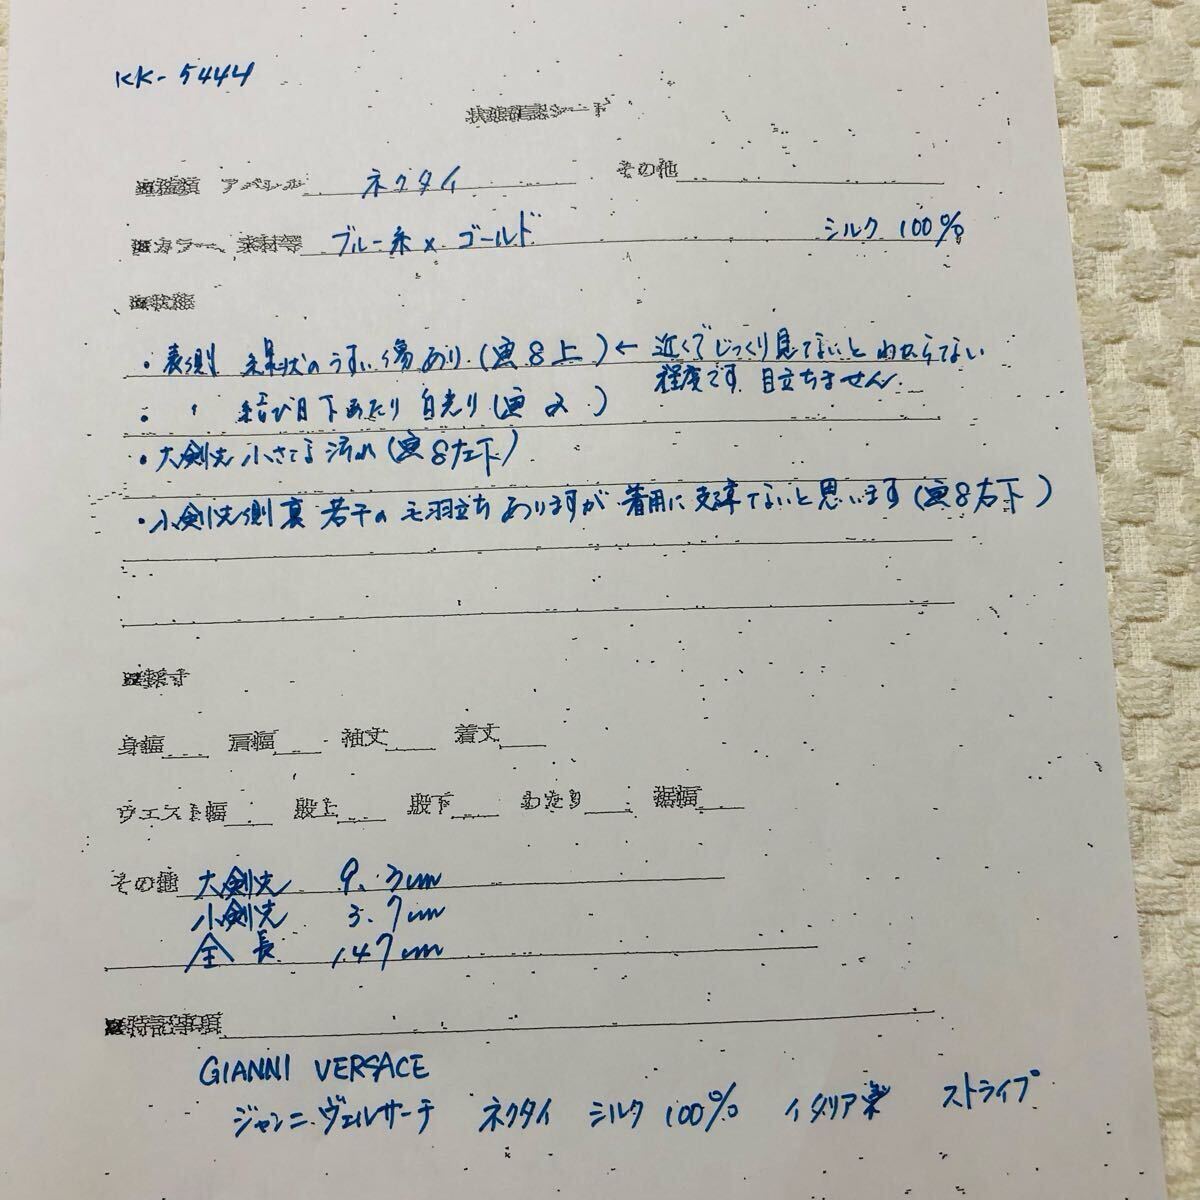 KK-5444
状態確認シート
■種類 アパレル ネクタイ その他
■カラー、素材等 ブルー系×ゴールド シルク 100%
■状態
・表側 線状のうすい傷あり(画8上)← 近くでじっくり見てないとわからない
程度です 目立ちません.
・ 〃 結び目下あたり 白光り(画2)
・大剣先 小さな汚れ(画8左下)
・小剣先側 裏 若干の毛羽立ちありますが 着用に支障ないと思います(画8右下)
■採寸
身幅 肩幅 袖丈 着丈
ウエスト幅 股上 股下 わたり 裾幅
その他 大剣先 9.3cm
小剣先 3.7cm
全長 147cm
■特記事項
GIANNI VERSACE
ジャンニ.ヴェルサーチ ネクタイ シルク 100% イタリア製 ストライプ